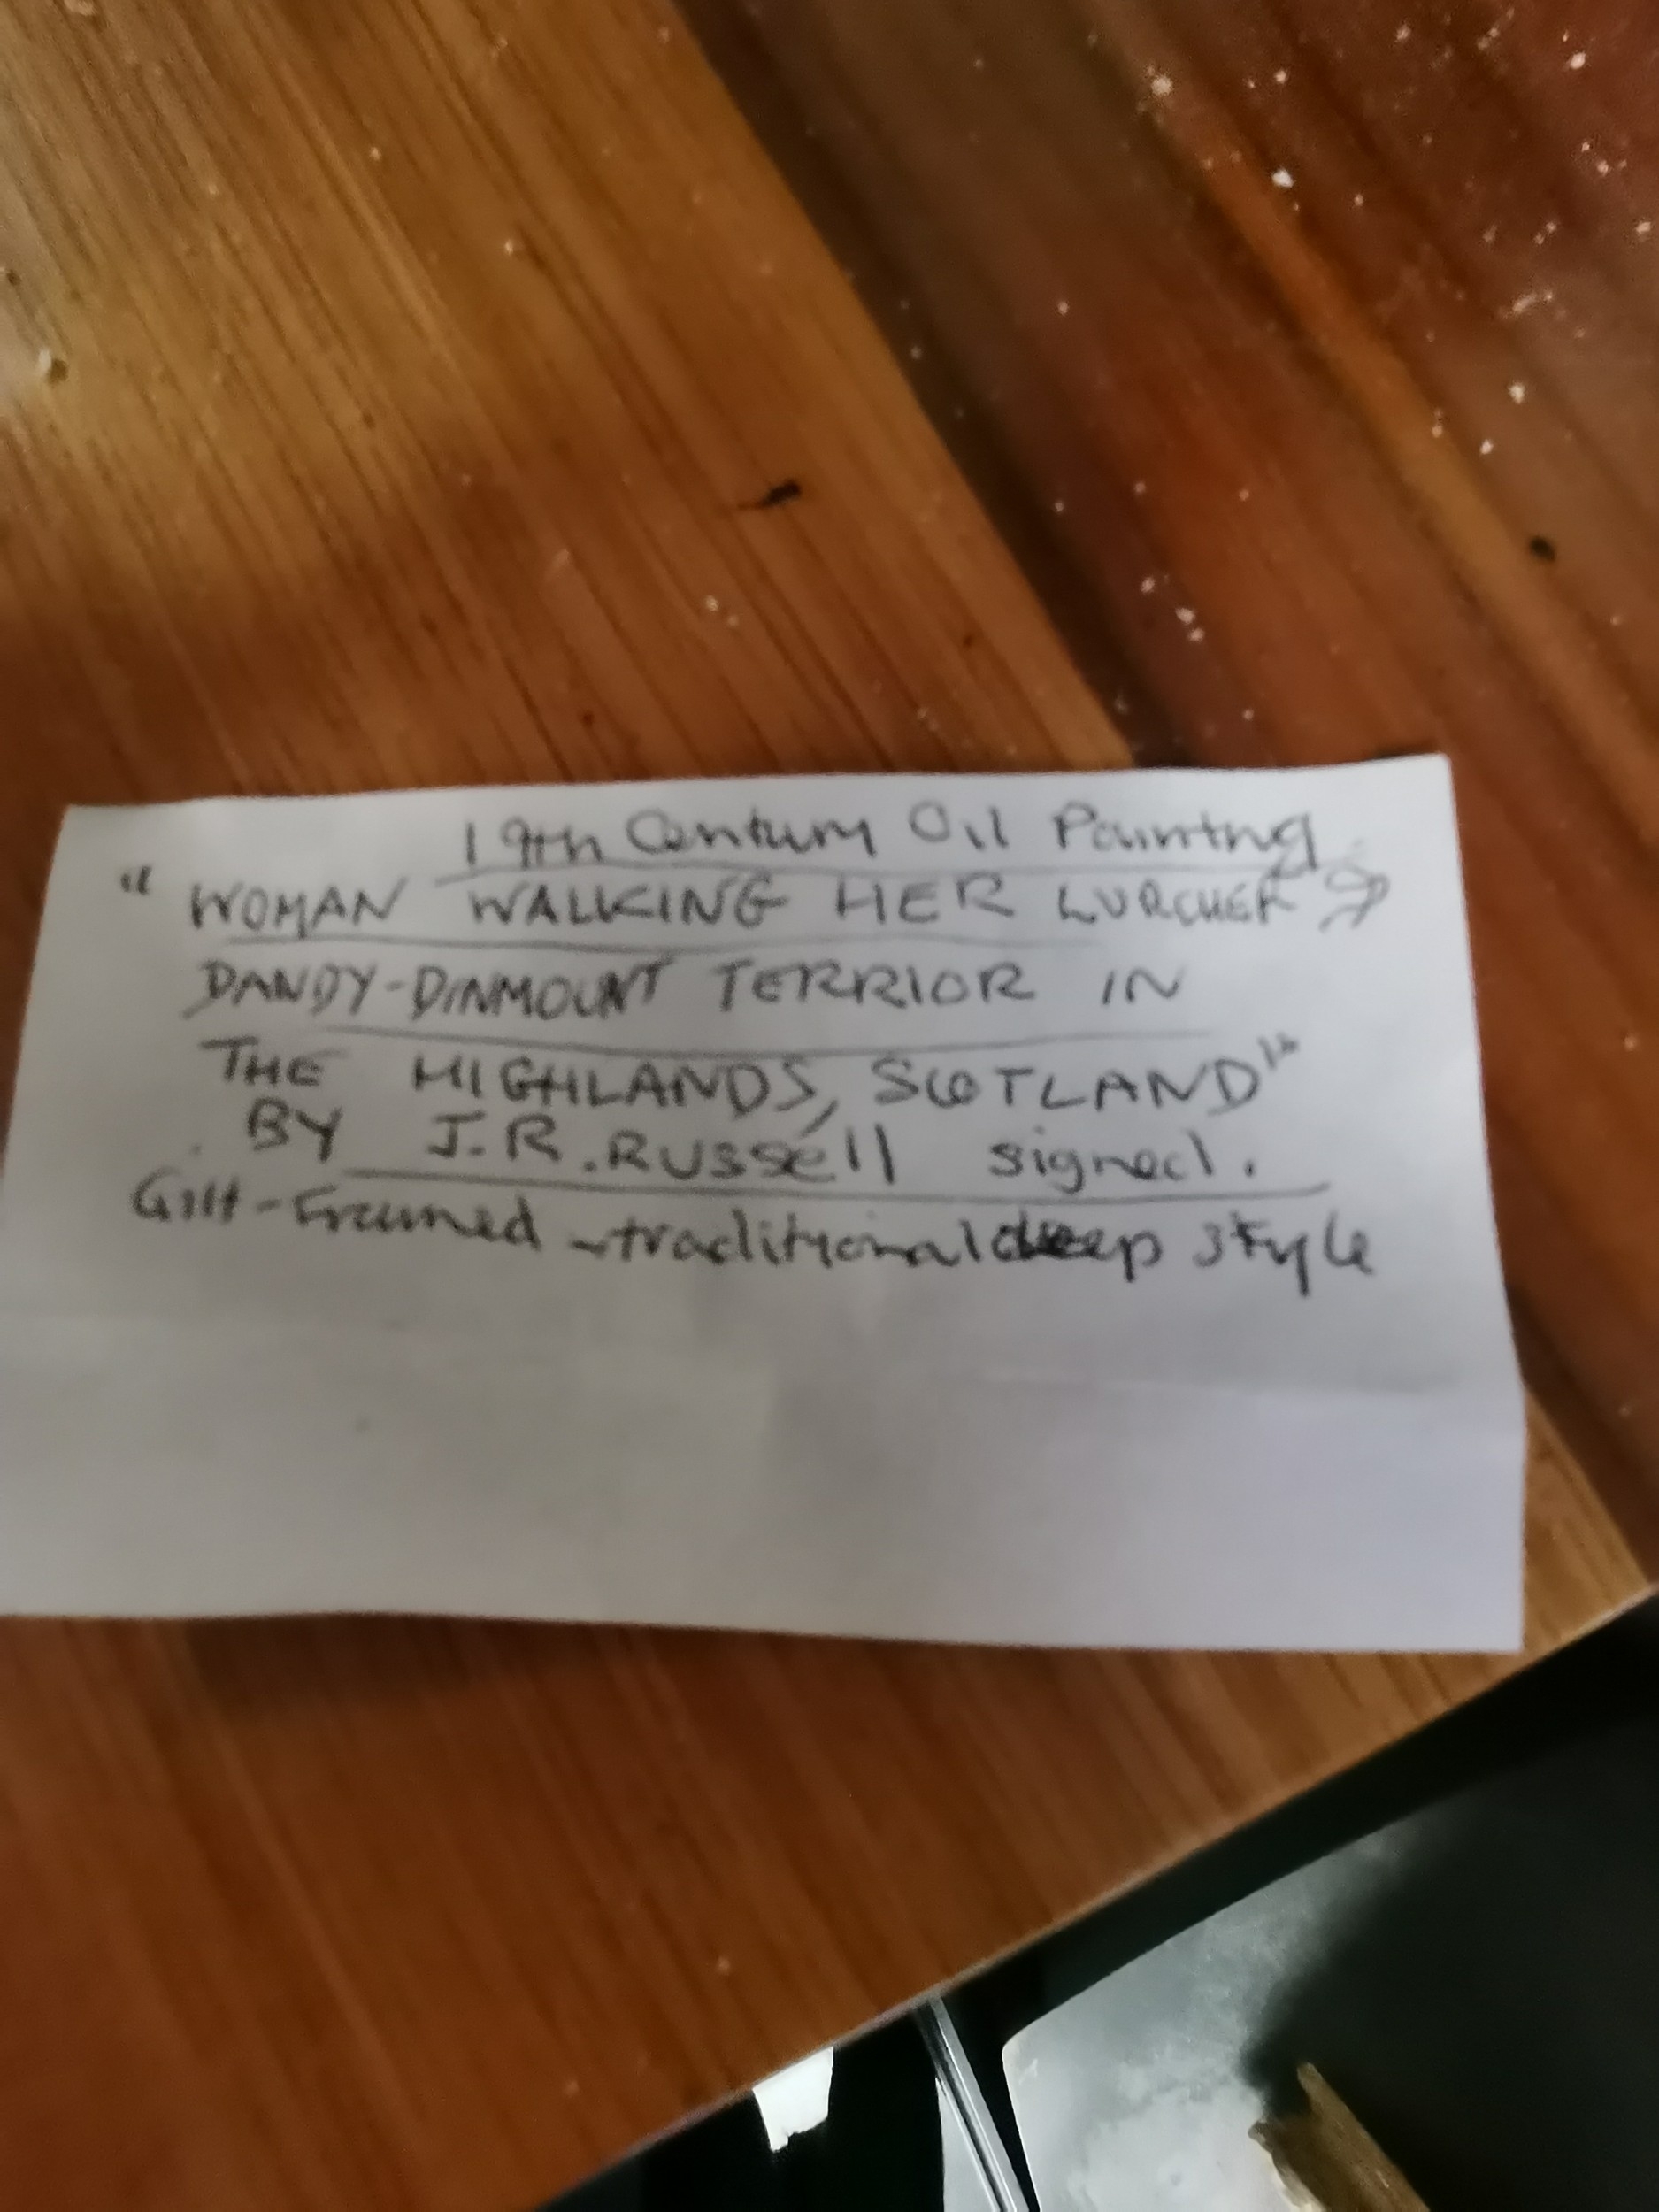 19th Century Oil Painting
" WOMAN WALKING HER LURCHER &
DANDY-DINMOUNT TERRIOR IN
THE HIGHLANDS, SCOTLAND"
BY J.R.RUSSell signed.
Gilt-Framed - traditional deep style